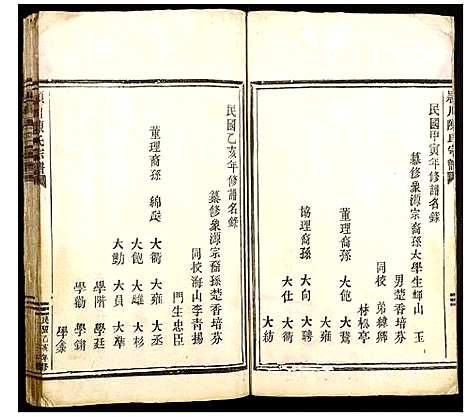 潁川陳氏宗譜
民國甲寅年修譜名錄
纂修象源宗裔孫太學生輝山 玉
男楚香培芬
同校 弟
林松亭
董理裔孫 大飽 大鵞
協理裔孫 大向 大騁
大仕 大紡
民國乙亥年修譜名錄
纂修象源宗裔孫楚香培芬
同校海山李青揚
門生忠臣
董理裔孫 綿 大衢 大雍 大丞
大飽 大雄 大杉
大勳 大員 大準
學階 學廷
學勤 學錦
學
民國乙亥年修